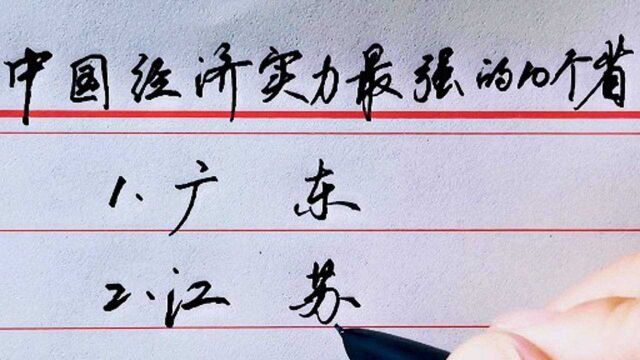 中国经济实力最强的10个省
1、广东
2、江苏